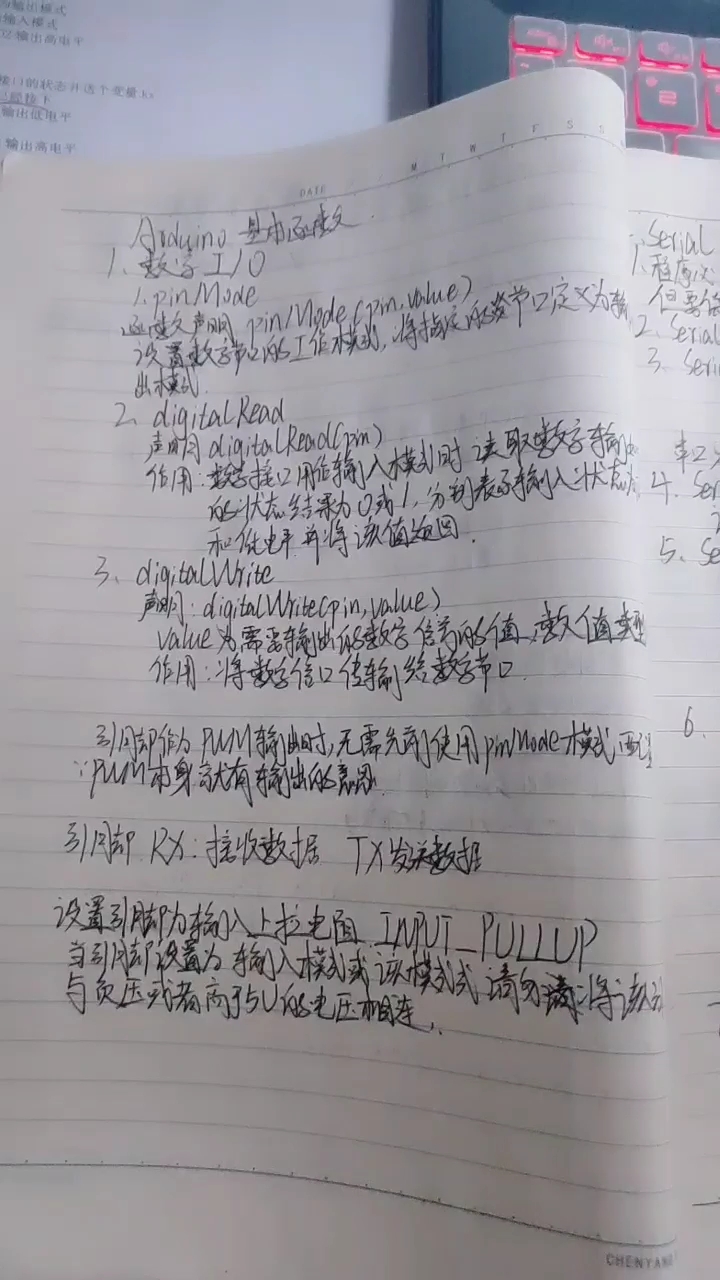 为输出模式
输入模式
输出高电平
接口的状态并送个变量
已经按下
输出低电平
输出高电平
DATE M T W T F S S
Arduino 基本函数
1、数字 I/O
1. pinMode
函数声明 pinMode(pin, value)
设置数字串口的工作模式, 将指定的数字串口定义为输
出模式.
2、digitalRead
声明 digitalRead(pin)
作用: 数字接口用作输入模式时 读取数字输
的状态结果为0或1, 分别表示输入状态
和低电平 并将该值返回.
3、digitalWrite
声明: digitalWrite(pin, value)
value为需要输出的数字信号的值, 数值类型
作用: 将数字信口传输给数字串口.
引脚作为PWM输出时, 无需先前使用pinMode模式
∵PWM本身就有输出的意思.
引脚 RX: 接收数据 TX发送数据
设置引脚为输入上拉电阻 INPUT_PULLUP
当引脚设置为 输入模式或该模式式 请勿 将该
与负压或者高于5V的电压相连.
Serial
1. 程序
但要
2. Serial
3. Seri
串口
4. Ser
5. Se
6.
CHENYANG